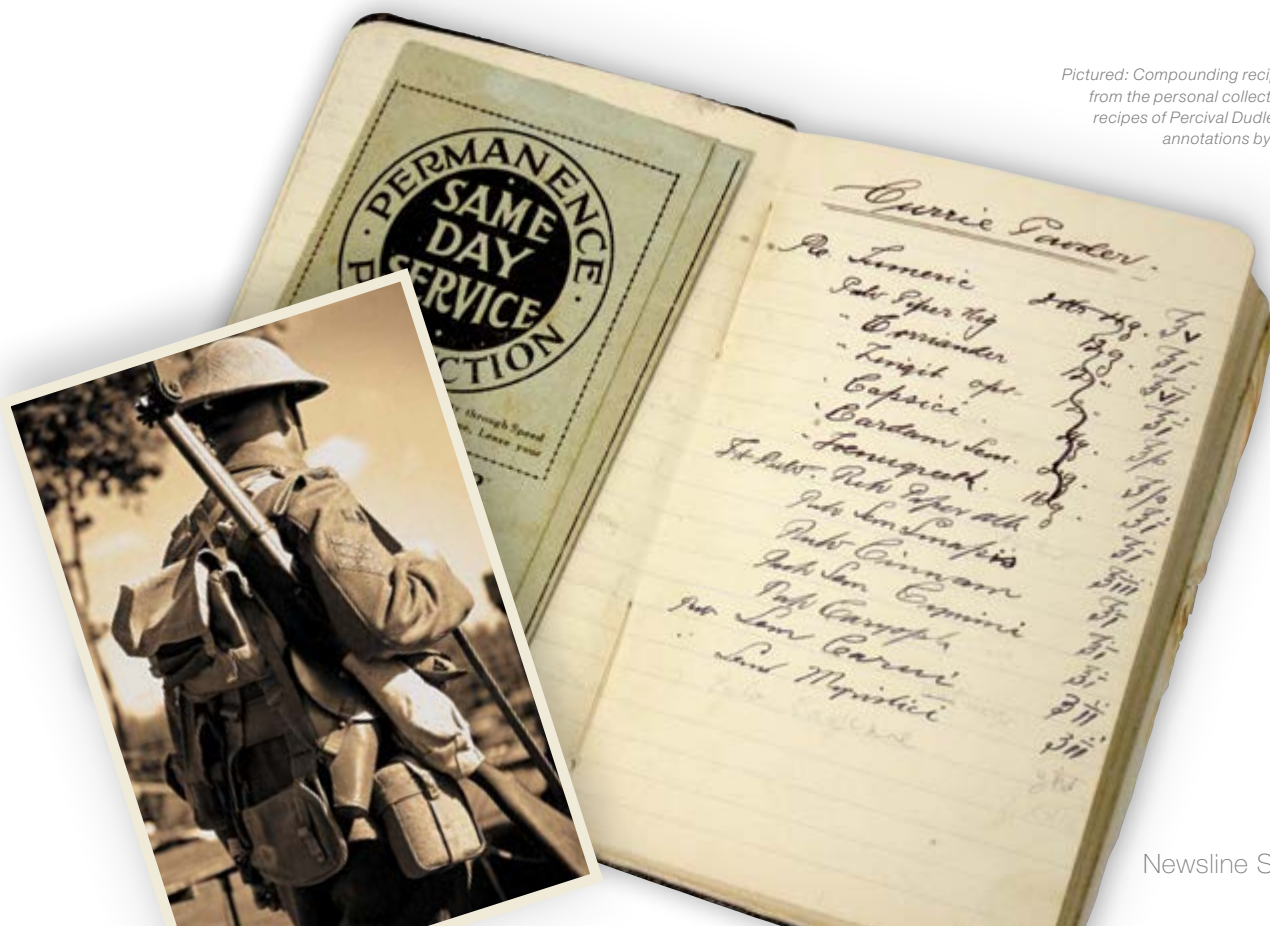 Pictured: Compounding reci
from the personal collect
recipes of Percival Dudle
annotations by
PERMANENCE
SAME
DAY
SERVICE
CTION
through Speed
Leave your
Currie Powder.
Re. Tumeric ℥v
Pulv Piper Nig ℥i
" Corriander ℥vi
" Zingib ℥i
" Capsici
" Cardam Sem.
" Foenugraeh. ℥i
Pulv Piper alb ℥i
Pulv Sem Sinapis ℥iii
Pulv Cinnam ℥i
Pulv Sem Cymini ℥i
Pulv Caryoph ℥i
Pulv Sem Carui ʒii
Myristici ʒii
Newsline S